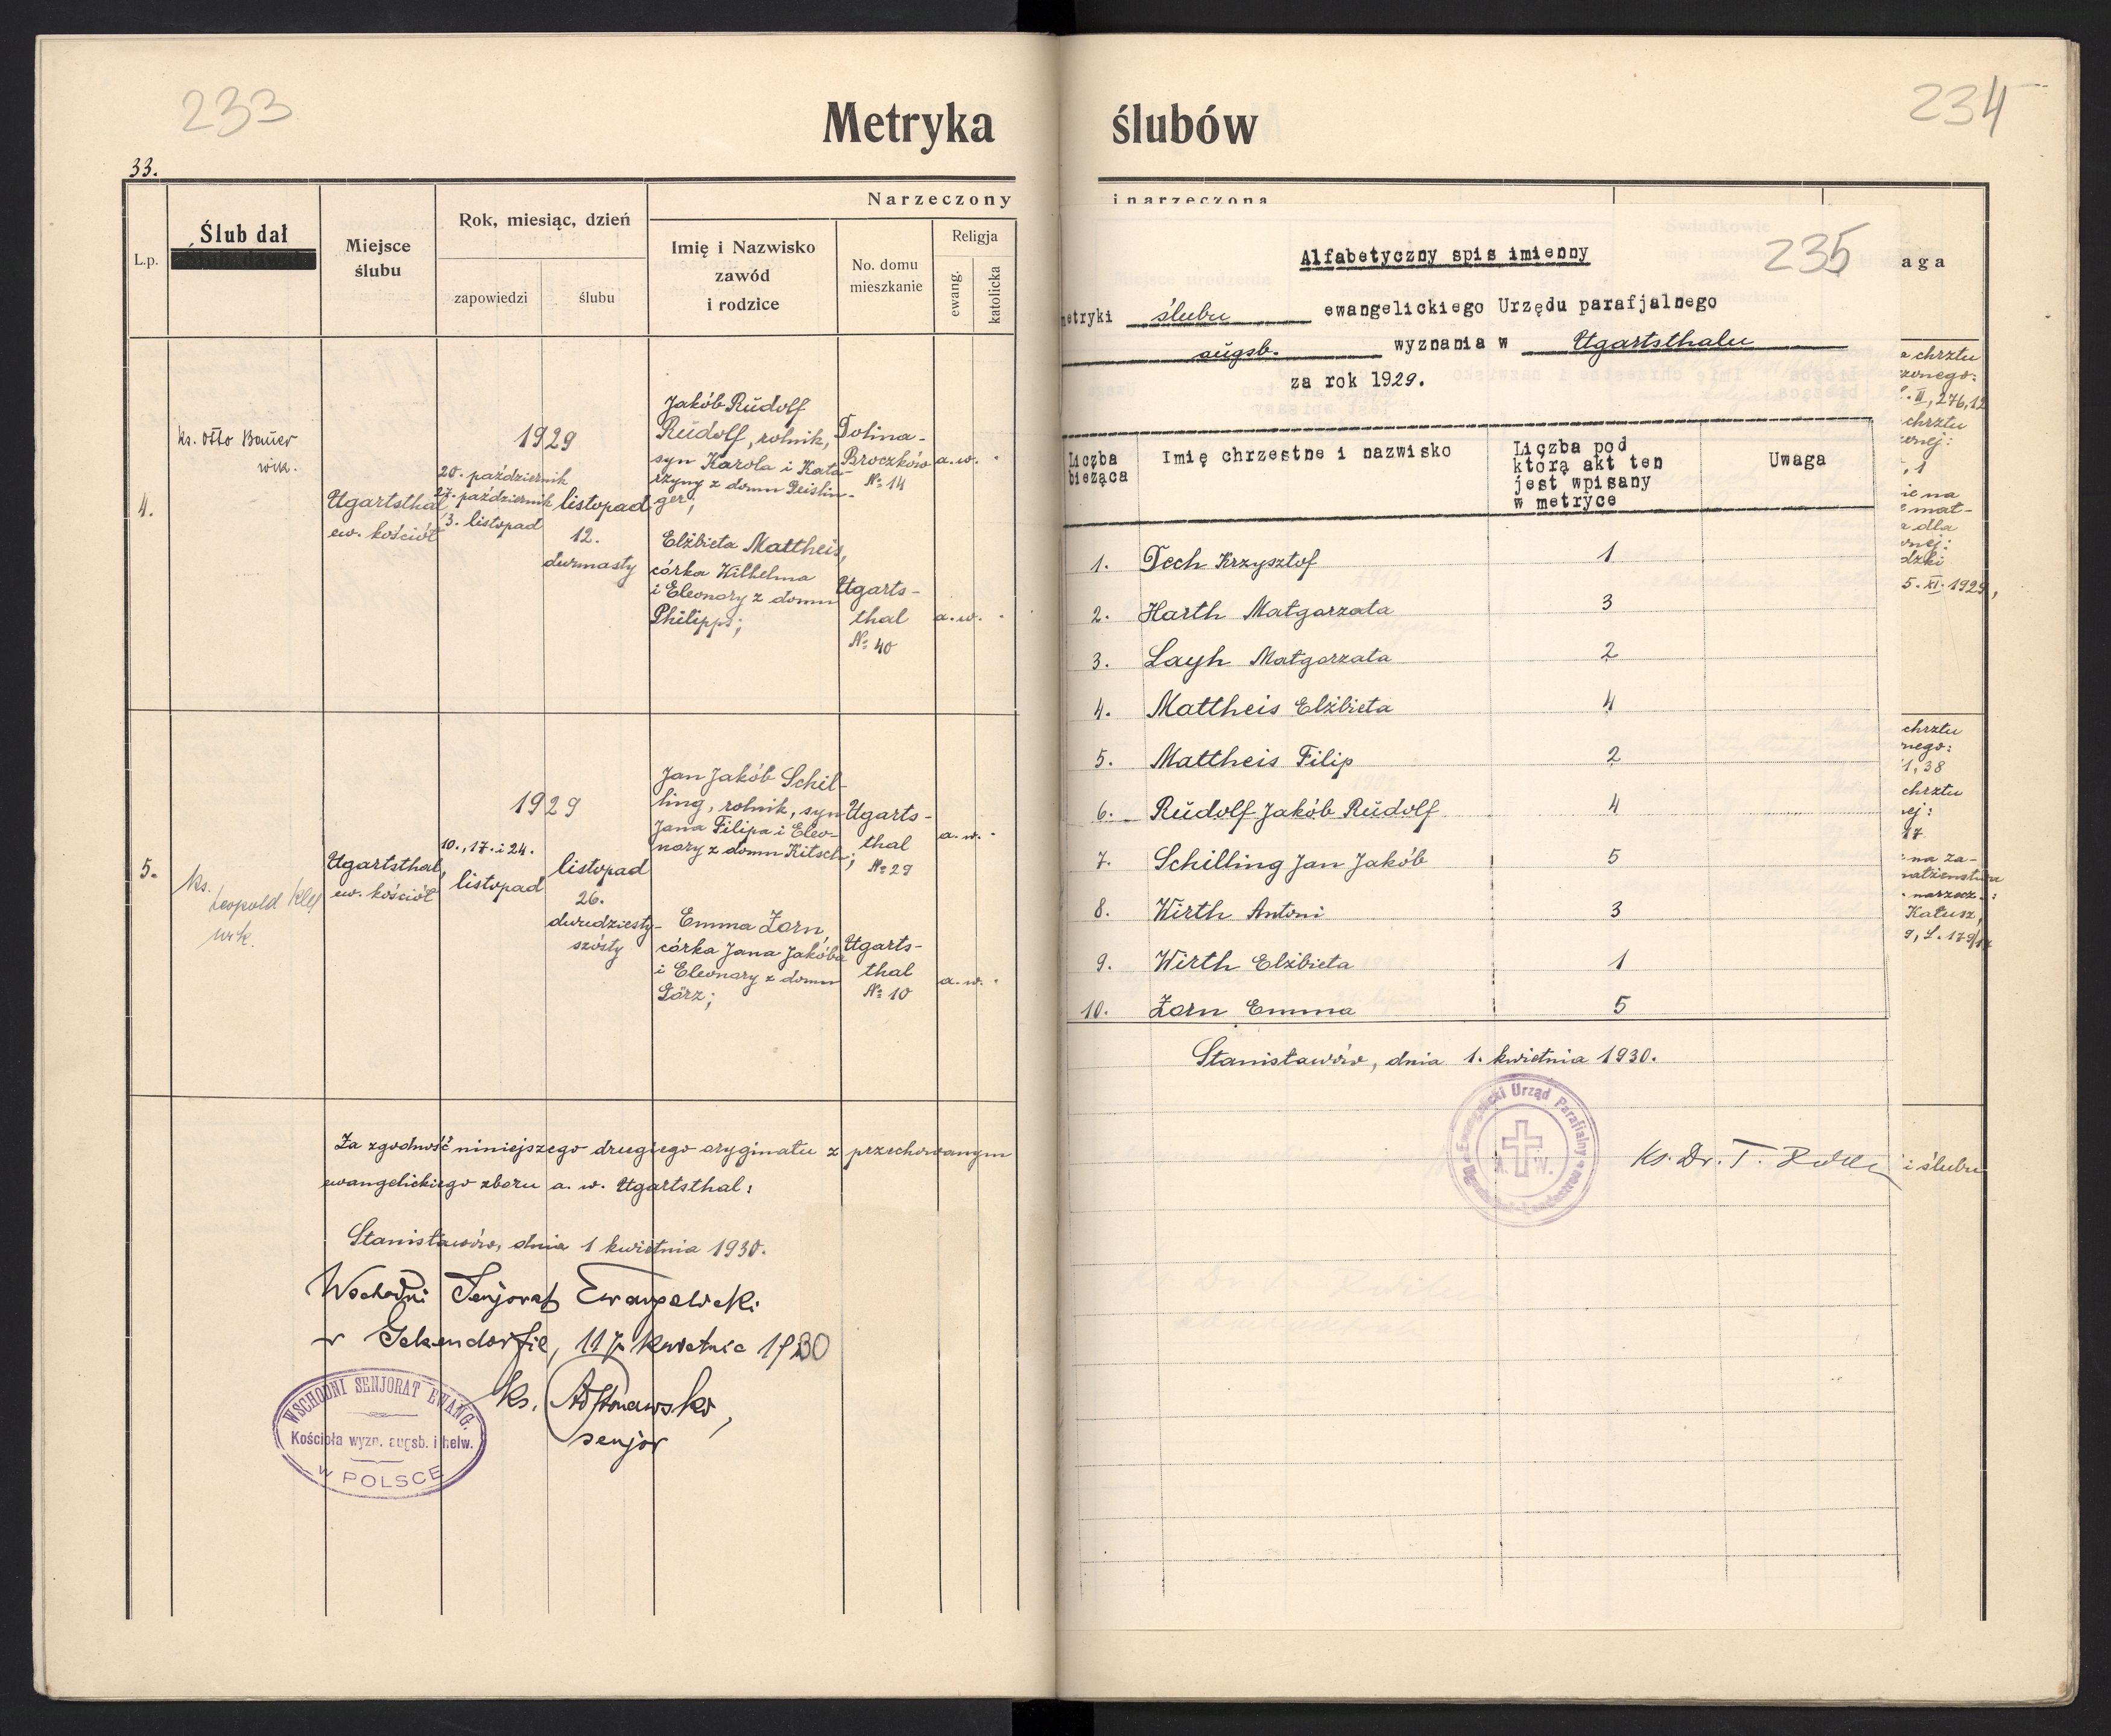 233
234
Metryka ślubów
33.
L.p.
Ślub dał
Miejsce
ślubu
Rok, miesiąc, dzień
zapowiedzi
ślubu
Narzeczony
Imię i Nazwisko
zawód
i rodzice
No. domu
mieszkanie
Religja
ewang.
katolicka
4.
ks. Otto Bauer
wik.
Ugartsthal
ew. kościół
1929
20. październik
27. październik
3. listopad
listopad
12.
dwunasty
Jakób Rudolf
Rudolf, rolnik,
syn Karola i Kata-
rzyny z domu Deislin-
ger;
Dolina-
Broczków
№ 14
a.w.
Elżbieta Mattheis,
córka Wilhelma
i Eleonory z domu
Philipps;
Ugarts-
thal
№ 40
a.w.
5.
ks.
Leopold
wik.
Ugartsthal,
ew. kościół
1929
10., 17. i 24.
listopad
listopad
26.
dwudziesty-
szósty
Jan Jakób Schil-
ling, rolnik, syn
Jana Filipa i Eleo-
nory z domu Kitsch;
Ugarts-
thal
№ 29
a.w.
Emma Zorn,
córka Jana Jakóba
i Eleonory z domu
Görz;
Ugarts-
thal
№ 10
a.w.
Za zgodność niniejszego drugiego oryginału z przechowanym
ewangelickiego zboru a. w. Ugartsthal:
Stanisławów, dnia 1 kwietnia 1930.
Wschodni Senjorat Ewangelicki
w kwietnia 1930
ks.
senjor
WSCHODNI SENJORAT EWANG.
Kościoła wyzn. augsb. i helw.
w POLSCE
i narzeczona
235
Alfabetyczny spis imienny
metryki ślubu ewangelickiego Urzędu parafjalnego
augsb. wyznania w Ugartsthalu
za rok 1929.
Liczba
bieżąca
Imię chrzestne i nazwisko
Liczba pod
którą akt ten
jest wpisany
w metryce
Uwaga
1. Dech Krzysztof 1
2. Harth Małgorzata 3
3. Layh Małgorzata 2
4. Mattheis Elżbieta 4
5. Mattheis Filip 2
6. Rudolf Jakób Rudolf 4
7. Schilling Jan Jakób 5
8. Wirth Antoni 3
9. Wirth Elżbieta 1
10. Zorn Emma 5
Stanisławów, dnia 1. kwietnia 1930.
Ewangelicki Urząd Parafialny
A. W.
ks. Dr. T.
aga
chrztu
II, 276, 12
chrztu
5. XI. 1929,
chrztu
38
chrztu
17
na za-
narzecz.:
Kałusz,
i ślubu